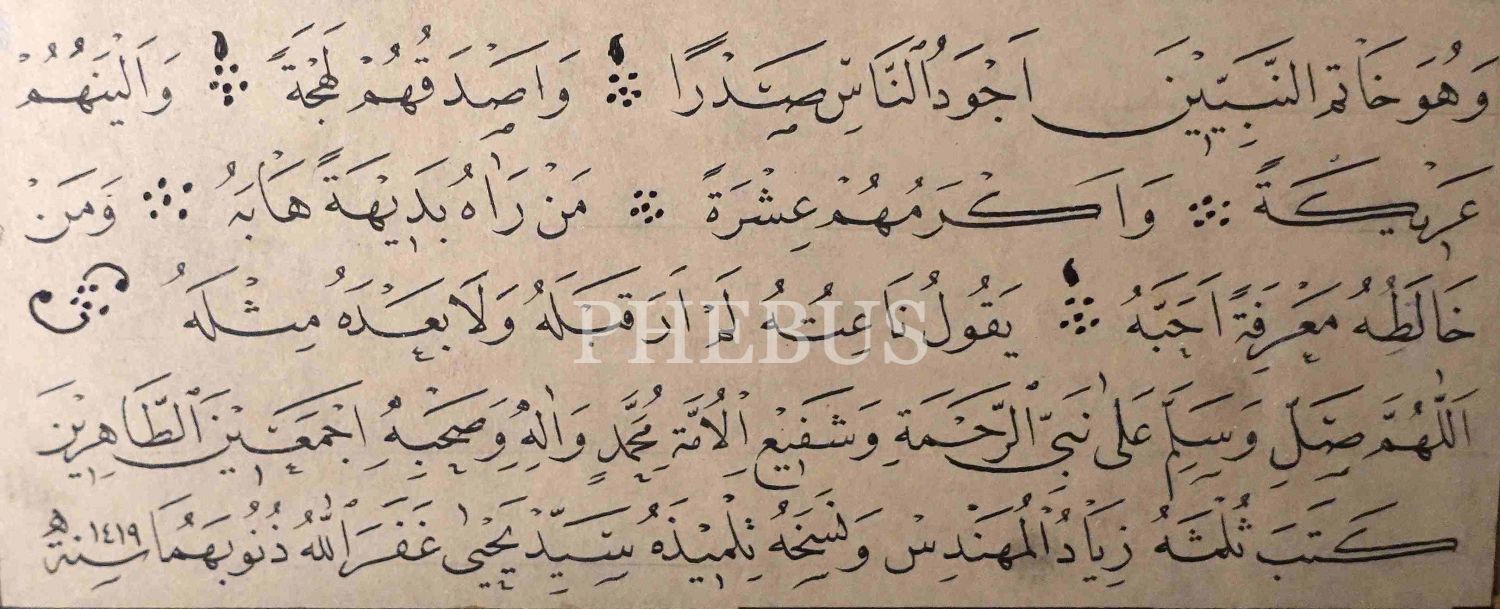 وَهُوَ خَاتَمُ النَّبِيِّينَ اَجْوَدُ النَّاسِ صَدْرًا وَاَصْدَقُهُمْ لَهْجَةً وَاَلْيَنُهُمْ
عَرِيكَةً وَاَكْرَمُهُمْ عِشْرَةً مَنْ رَاٰهُ بَدِيهَةً هَابَهُ وَمَنْ
خَالَطَهُ مَعْرِفَةً اَحَبَّهُ يَقُولُ نَاعِتُهُ لَمْ اَرَ قَبْلَهُ وَلَا بَعْدَهُ مِثْلَهُ
PHEBUS
اَللّٰهُمَّ صَلِّ وَسَلِّمْ عَلٰى نَبِيِّ الرَّحْمَةِ وَشَفِيعِ الْاُمَّةِ مُحَمَّدٍ وَاٰلِهِ وَصَحْبِهِ اَجْمَعِينَ الطَّاهِرِينَ
كَتَبَ ثُلُثَهُ زِيَادُ الْمُهَنْدِسْ وَنَسَخَهُ تِلْمِيذُهُ سَيِّدْ يَحْيٰى غَفَرَ اللهُ ذُنُوبَهُمَا سَنَةَ ١٤١٩ هـ